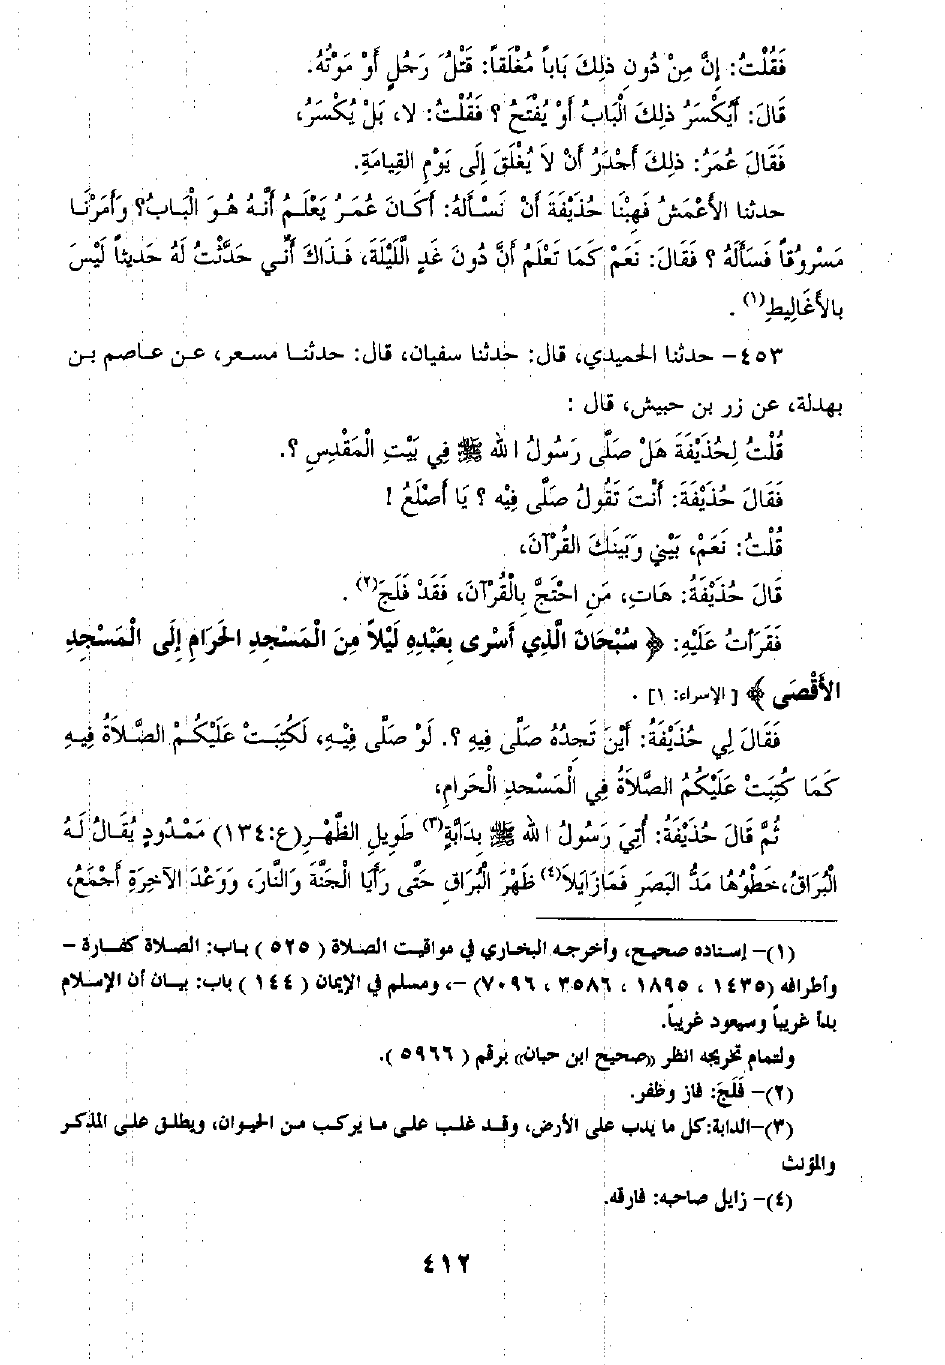 فَقُلْتُ: إِنَّ مِنْ دُونِ ذلِكَ بَاباً مُغْلَقاً: قَتْلُ رَجُلٍ أَوْ مَوْتُهُ.
قَالَ: أَيُكْسَرُ ذلِكَ الْبَابُ أَوْ يُفْتَحُ ؟ فَقُلْتُ: لا، بَلْ يُكْسَرُ،
فَقَالَ عُمَرُ: ذلِكَ أَجْدَرُ أَنْ لاَ يُغْلَقَ إِلَى يَوْمِ القِيامَةِ.
حدثنا الأعْمَشُ فَهِبْنَا حُذَيْفَةَ أَنْ نَسْأَلَهُ: أَكَانَ عُمَرُ يَعْلَمُ أَنَّهُ هُوَ الْبَابُ؟ وَأَمَرْنَا
مَسْرُوقاً فَسَأَلَهُ ؟ فَقَالَ: نَعَمْ كَمَا تَعْلَمُ أَنَّ دُونَ غَدٍ الَّلَيْلَةَ، فَذَاكَ أَنِّي حَدَّثْتُ لَهُ حَدِيثاً لَيْسَ
بالأَغَالِيطِ(١) .
٤٥٣- حدثنا الحميدي، قال: حدثنا سفيان، قال: حدثنا مسعر، عن عاصم بن
بهدلة، عن زر بن حبيش، قال :
قُلْتُ لِحُذَيْفَةَ هَلْ صَلَّى رَسُولُ الله ﷺ فِي بَيْتِ الْمَقْدِسِ ؟.
فَقَالَ حُذَيْفَةَ: أَنْتَ تَقُولُ صَلَّى فِيْهِ ؟ يَا أَصْلَعُ !
قُلْتُ: نَعَمْ، بَيْنِي وَبَينَكَ القُرْآنَ،
قَالَ حُذَيْفَةُ: هَاتِ، مَنِ احْتَجَّ بِالْقُرْآنَ، فَقَدْ فَلَجَ(٢) .
فَقَرَأتُ عَلَيْهِ: ﴿ سُبْحَانَ الَّذِي أَسْرى بِعَبْدِهِ لَيْلاً مِنَ الْمَسْجِدِ الحَرامِ إِلَى الْمَسْجِدِ
الأَقْصَى ﴾ [ الإسراء: ١] .
فَقَالَ لِي حُذَيْفَةُ: أَيْنَ تَجِدُهُ صَلَّى فِيهِ ؟. لَوْ صَلَّى فِيْهِ، لَكُتِبَتْ عَلَيْكُمْ الصَّلاَةُ فِيهِ
كَمَا كُتِبَتْ عَلَيْكُمُ الصَّلاَةُ فِي الْمَسْجدِ الْحَرامِ،
ثُمَّ قَالَ حُذَيْفَةُ: أُتِيَ رَسُولُ الله ﷺ بِدَابَّةٍ(٣) طَوِيلِ الظَّهْرِ(ع:١٣٤) مَمْدُودٍ يُقَالُ لَهُ
الْبُرَاقُ،خَطْوُهَا مَدُّ البَصَرِ فَمَازَايَلاَ(٤) ظَهْرَ الْبُرَاقِ حَتَّى رَأَيَا الْجَنَّةَ وَالنَّارَ، وَوَعْدَ الآخِرَةِ أَجْمَعُ،
(١)- إسناده صحيح، وأخرجه البخاري في مواقيت الصلاة ( ٥٢٥ ) باب: الصلاة كفارة -
وأطرافه (١٤٣٥ ، ١٨٩٥ ، ٣٥٨٦ ، ٧٠٩٦) -، ومسلم في الإيمان ( ١٤٤ ) باب: بيان أن الإسلام
بدأ غريباً وسيعود غريباً.
ولتمام تخريجه انظر «صحيح ابن حبان» برقم ( ٥٩٦٦ ).
(٢)- فَلَجَ: فاز وظفر.
(٣)-الدابة:كل ما يدب على الأرض، وقد غلب على ما يركب من الحيوان، ويطلق على المذكر
والمؤلث
(٤)- زايل صاحبه: فارقه.
٤١٢